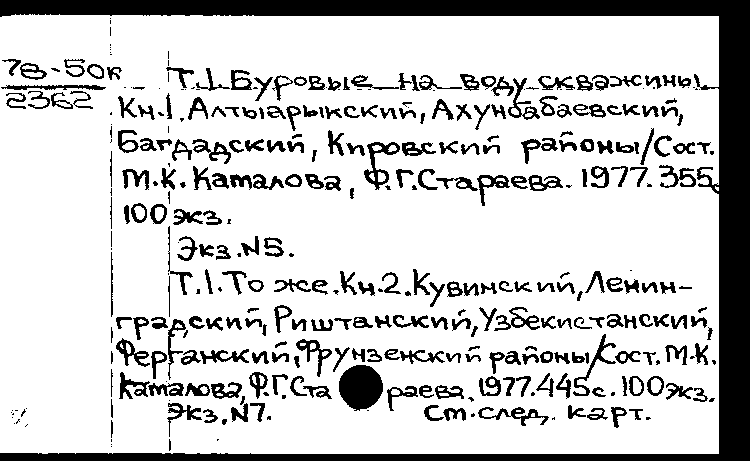 78-50к
2362
Т.1.Буровые на воду скважины.
Кн.1.Алтыарыкский, Ахунбабаевский,
Багдадский, Кировский районы/Сост.
М.К.Камалова, Ф.Г.Стараева. 1977. 355с.
100 экз.
Экз.N5.
Т.1.То же.Кн.2.Кувинский, Ленин-
градский, Риштанский, Узбекистанский,
Ферганский, Фрунзенский районы/Сост. М.К.
Камалова, Ф.Г.Стараева. 1977. 445с. 100 экз.
Экз.N7. См.след. карт.